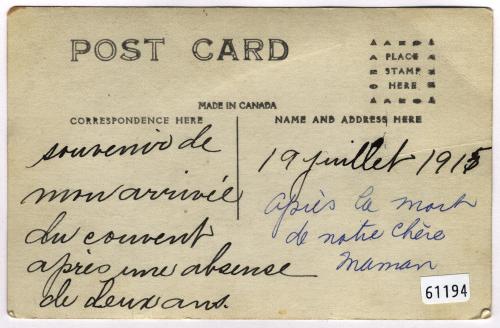 POST CARD
PLACE
STAMP
HERE
MADE IN CANADA
CORRESPONDENCE HERE
NAME AND ADDRESS HERE
souvenir de
mon arrivée
du couvent
après une absense
de deux ans.
19 juillet 1915
après la mort
de notre chère
maman
61194